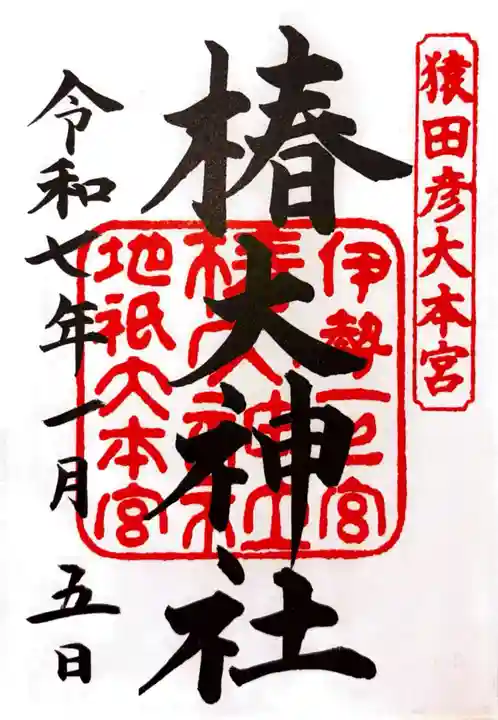 猿田彦大本宮
椿大神社
伊勢一之宮
椿大神社
地祇大本宮
令和七年一月五日